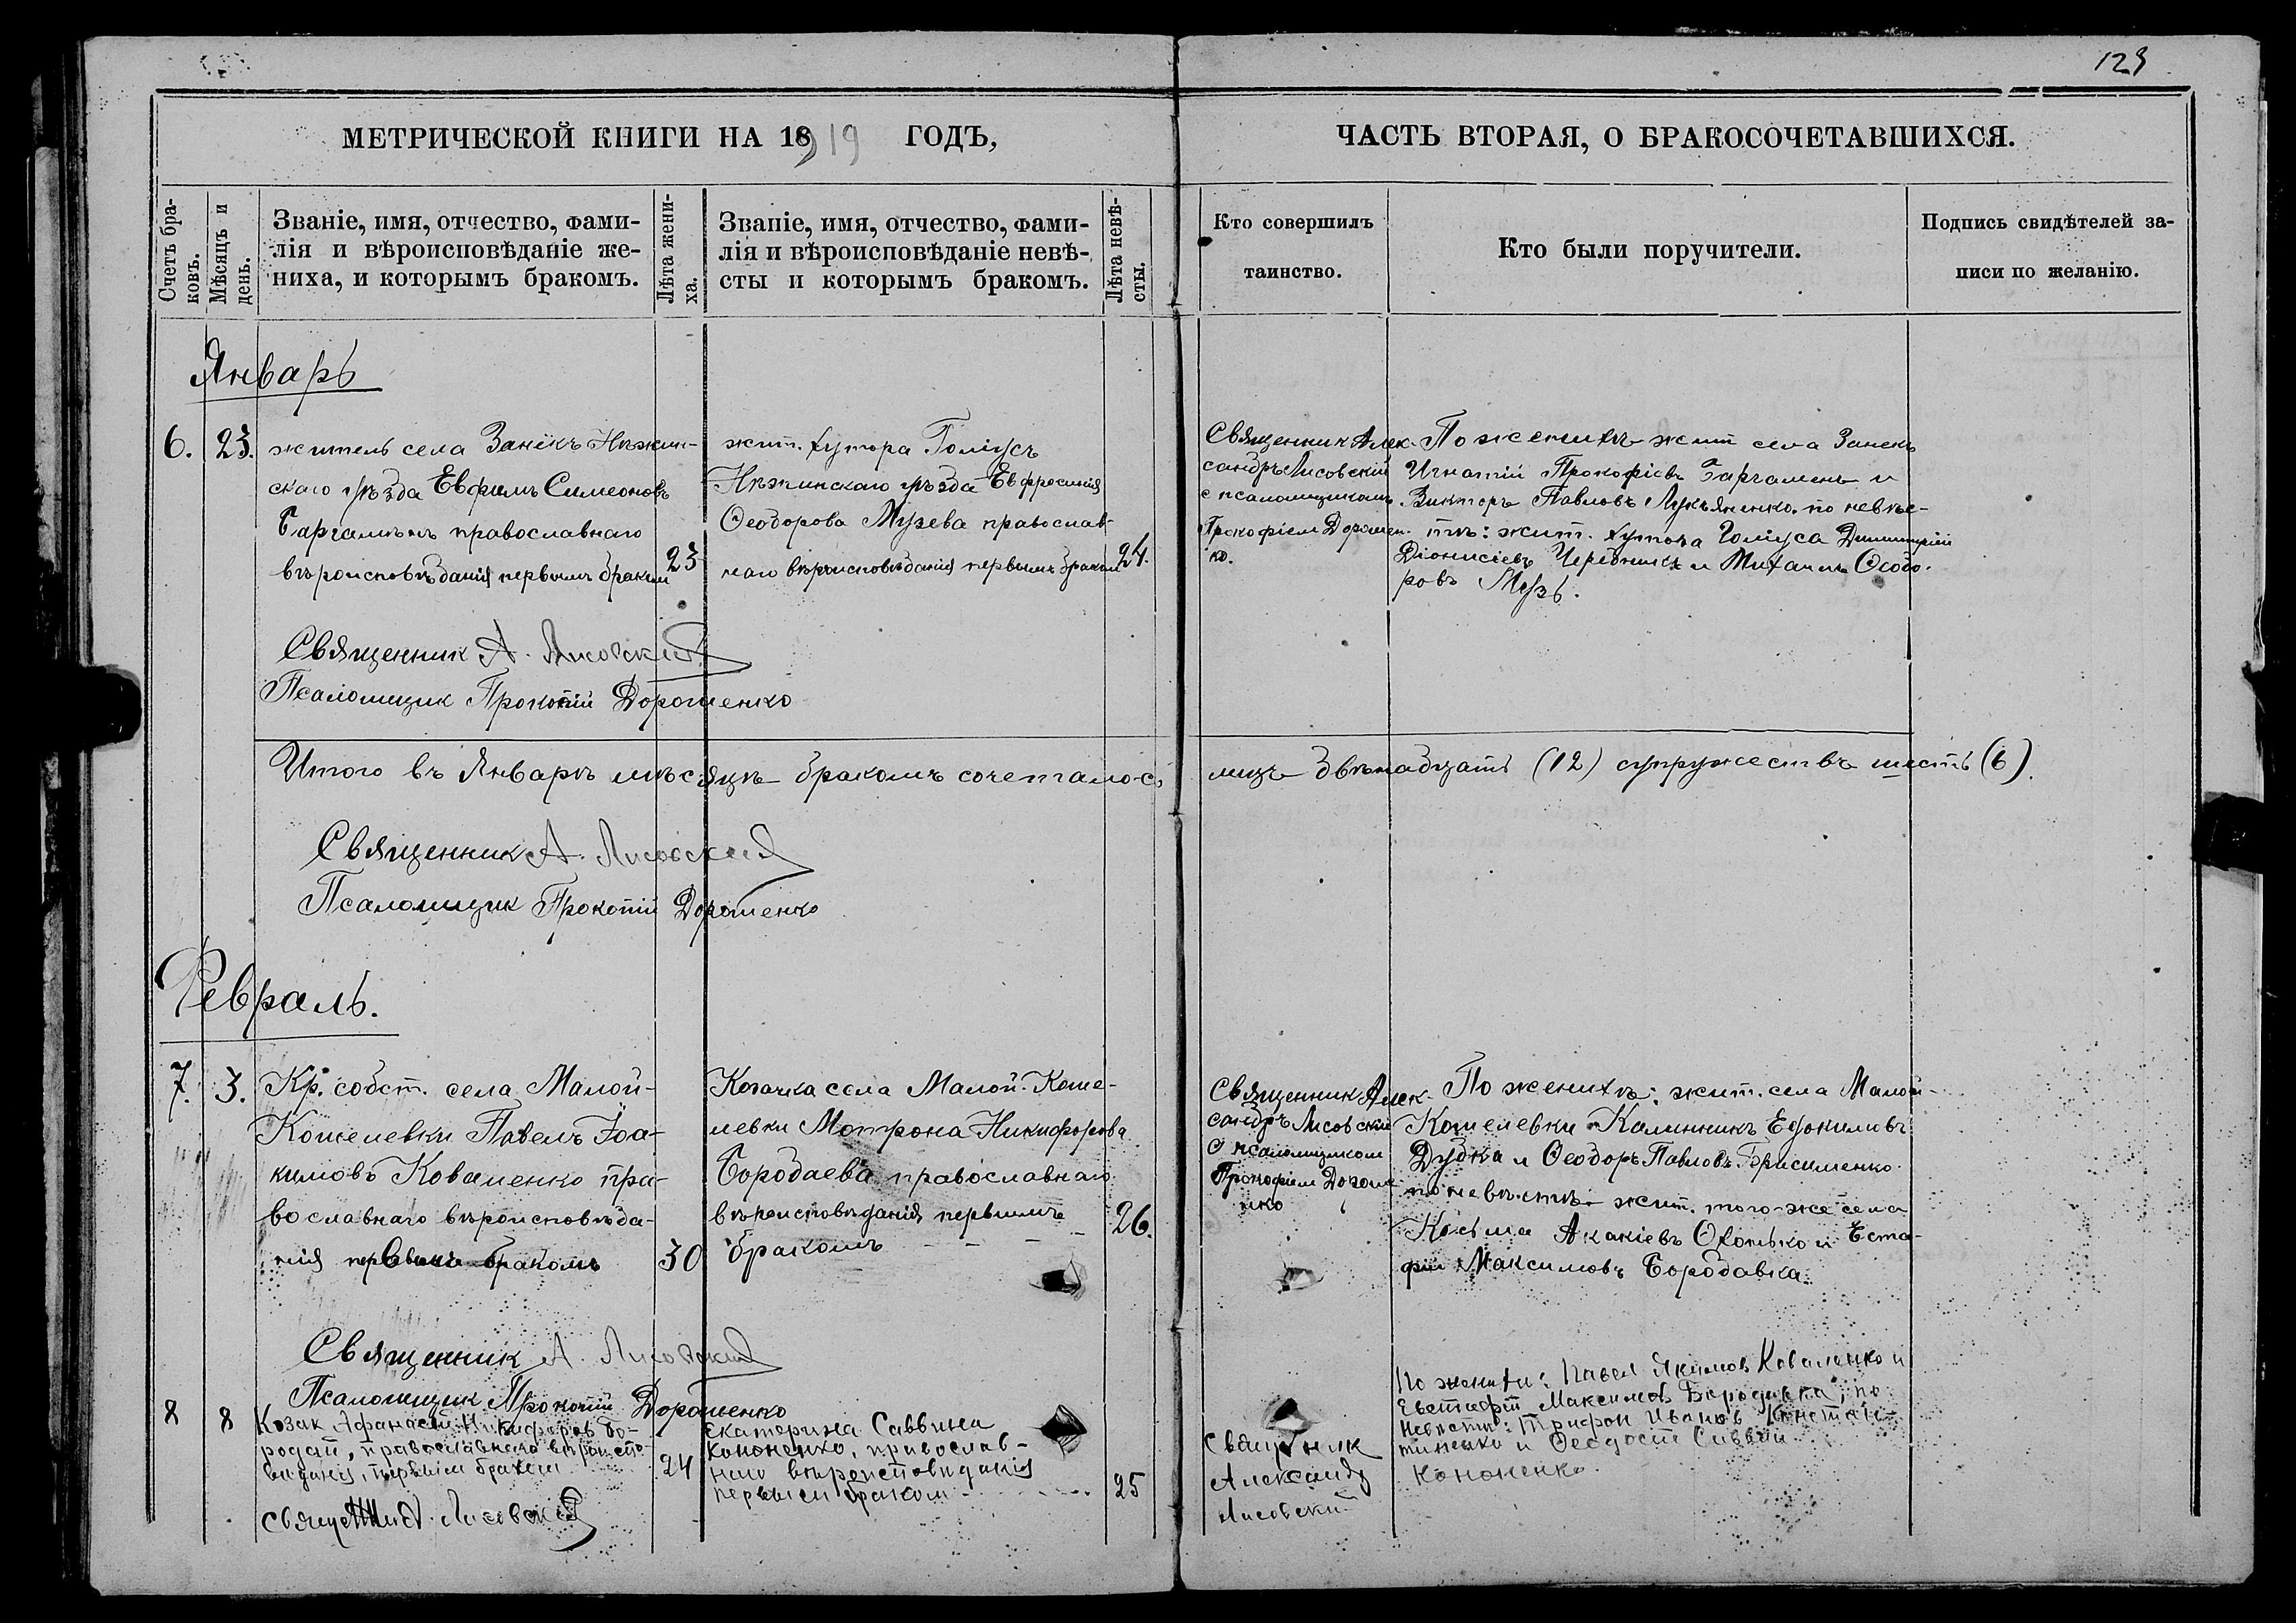 129
МЕТРИЧЕСКОЙ КНИГИ НА 1919 ГОДЪ,
ЧАСТЬ ВТОРАЯ, О БРАКОСОЧЕТАВШИХСЯ.
Счетъ бра-
ковъ.
Мѣсяцъ и
день.
Званіе, имя, отчество, фами-
лія и вѣроисповѣданіе же-
ниха, и которымъ бракомъ.
Лѣта жени-
ха.
Званіе, имя, отчество, фами-
лія и вѣроисповѣданіе невѣ-
сты и которымъ бракомъ.
Лѣта невѣ-
сты.
Кто совершилъ
таинство.
Кто были поручители.
Подпись свидѣтелей за-
писи по желанію.
Январь
6.
23.
житель села Занекъ Нѣжин-
скаго уѣзда Евфимъ Симеоновъ
Баргамънъ православнаго
вѣроисповѣданія первымъ бракомъ
23
жит. хутора Голіусъ
Нѣжинскаго уѣзда Евфросинія
Ѳеодорова Музева православ-
наго вѣроисповѣданія первымъ бракомъ
24.
Священникъ Алек-
сандръ Лисовскій
с псаломщикомъ
Прокофіем Дорошен-
ко.
По женихѣ жит села Занекъ
Игнатій Прокофіевъ Баргаменъ и
Викторъ Павловъ Лукъяненко. по невѣс-
тѣ: жит. хутора Голіуса Димитрій
Діонисіевъ Чередникъ и Михаилъ Ѳеодо-
ровъ Музь.
Священник А. Лисовскій
Псаломщик Прокопій Дорошенко
Итого въ Январѣ мѣсяцѣ бракомъ сочеталось лицъ двѣнадцать (12) супружествъ шесть (6).
Священник А. Лисовскій
Псаломщик Прокопій Дорошенко
Февраль.
7.
3.
Кр. собст. села Малой-
Кошелевки Павелъ Іоа-
кимовъ Коваленко пра-
вославнаго вѣроисповѣда-
нія первымъ бракомъ
30
Козачка села Малой-Коше-
левки Мотрона Никифорова
Бородаева православнаго
вѣроисповѣданія первымъ
бракомъ
26.
Священник Алек-
сандръ Лисовскій
с псаломщиком
Прокофіем Дороше
нко
По женихѣ: жит. села Малой-
Кошелевки Калинникъ Евдокимовъ
Дудка и Ѳеодоръ Павловъ Герисименко
по невѣстѣ жит. того-же села
Козьма Акакіевъ Охонько и Еста-
фій Максимовъ Бородавка.
Священник А. Лисовскій
Псаломщик Прокопій Дорошенко
8
8
Козак Афанасій Никифоров Бо-
родай, православнаго вѣроиспо-
виданія, первым браком
24
Екатерина Саввина
Кононенко, православ-
наго вѣроисповиданія
первым браком
25
Священник
Александр
Лисовскій
По жених: Павел Якимов Коваленко и
Евстафій Максимов Бородавка; по
невѣсти: Трифон Иванов Констан-
тиненко и Ѳеодосій Саввин
Кононенко.
Священник А. Лисовскій